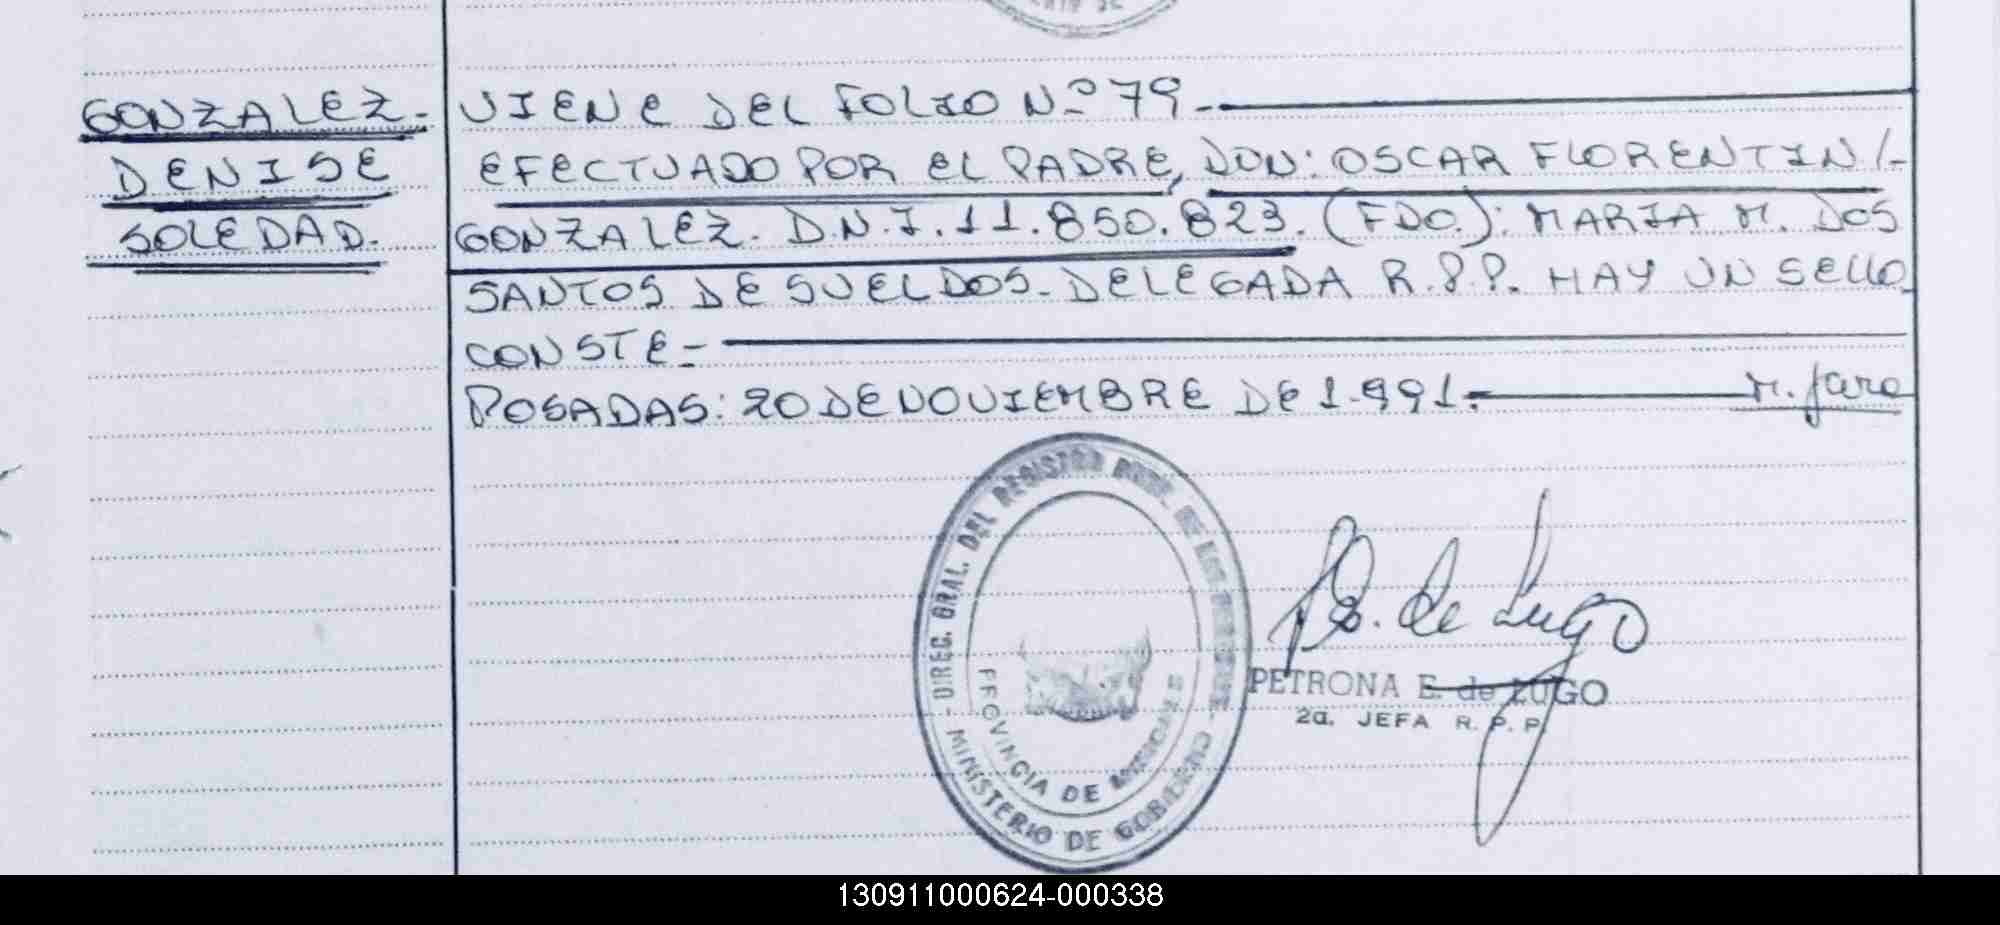 GONZALEZ-
DENISE
SOLEDAD.
VIENE DEL FOLIO Nº 79-
EFECTUADO POR EL PADRE, DON: OSCAR FLORENTIN/-
GONZALEZ. D.N.I. 11.850.823. (FDO.): MARIA M. DOS
SANTOS DE SUELDOS- DELEGADA R.P.P. HAY UN SELLO-
CONSTE-
POSADAS: 20 DE NOVIEMBRE DE 1.991.- M. Jara
- DIREC. GRAL. DEL REGISTRO PROV. DE LAS PERSONAS -
PROVINCIA DE MISIONES
MINISTERIO DE GOBIERNO
P. de Lugo
PETRONA E. de LUGO
2a. JEFA R. P. P.
130911000624-000338